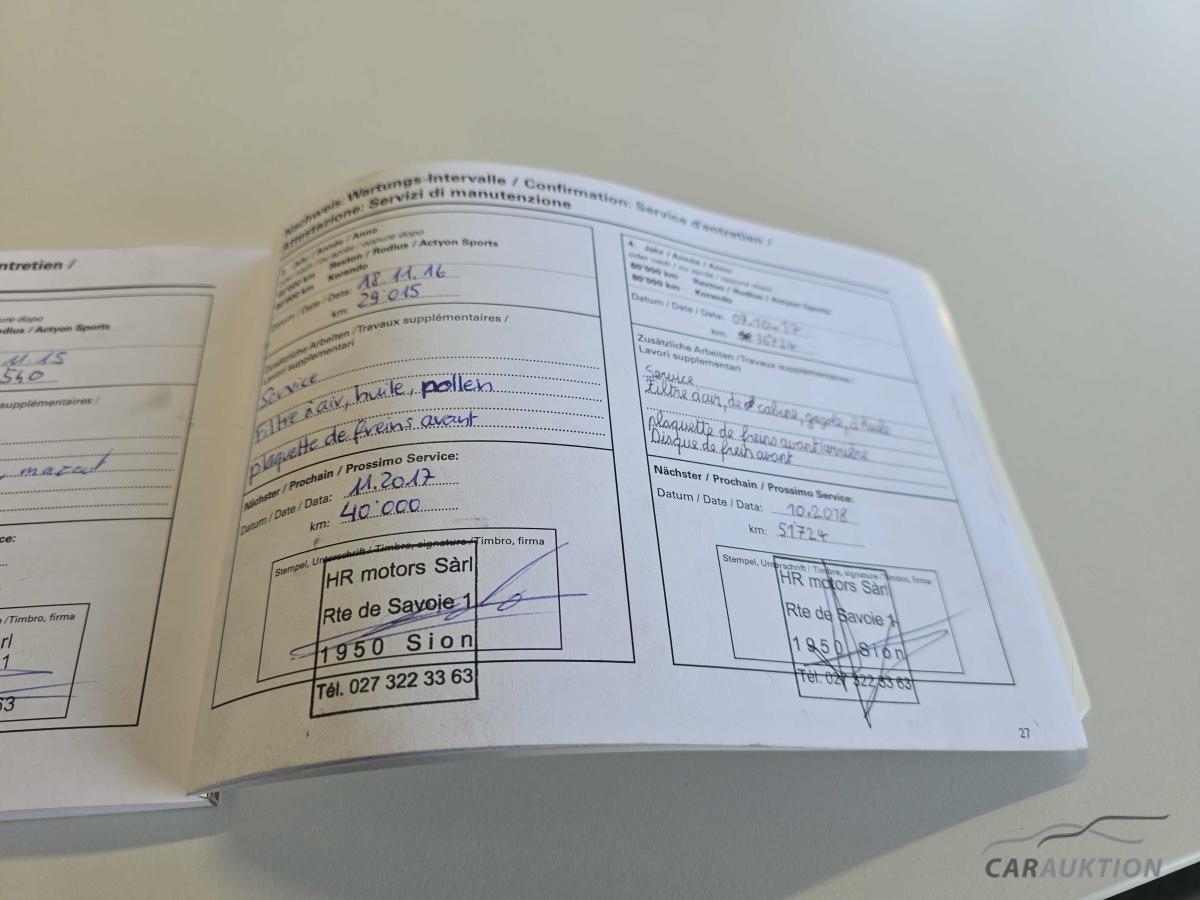 ntretien /
ure dopo
odius / Actyon Sports
11.15
540
supplémentaires /
mazout
ce:
/Timbro, firma
rl
1
63
Nachweis: Wartungs-Intervalle / Confirmation: Service d'entretien /
Attestazione: Servizi di manutenzione
3. Jahr / Année / Anno
oder nach / ou après / oppure dopo
Rexton / Rodius / Actyon Sports
Korando
Datum / Date / Data: 18.11.16
km: 29'015
Zusätzliche Arbeiten / Travaux supplémentaires /
Lavori supplementari
Service
Filtre à air, huile, pollen
plaquette de freins avant
Nächster / Prochain / Prossimo Service:
Datum / Date / Data: 11.2017
km: 40'000
Stempel, Unterschrift / Timbre, signature / Timbro, firma
HR motors Sàrl
Rte de Savoie 1
1950 Sion
Tél. 027 322 33 63
4. Jahr / Année / Anno
oder nach / ou après / oppure dopo
60'000 km Rexton / Rodius / Actyon Sports
80'000 km Korando
Datum / Date / Data: 09.10.17
km: 36724
Zusätzliche Arbeiten / Travaux supplémentaires /
Lavori supplementari
Service
Filtre à air, de cabine, gazole, à huile
plaquette de freins avant/arrière
Disque de frein avant
Nächster / Prochain / Prossimo Service:
Datum / Date / Data: 10.2018
km: 51'724
Stempel, Unterschrift / Timbre, signature / Timbro, firma
HR motors Sàrl
Rte de Savoie 1
1950 Sion
Tél. 027 322 33 63
27
CARAUKTION